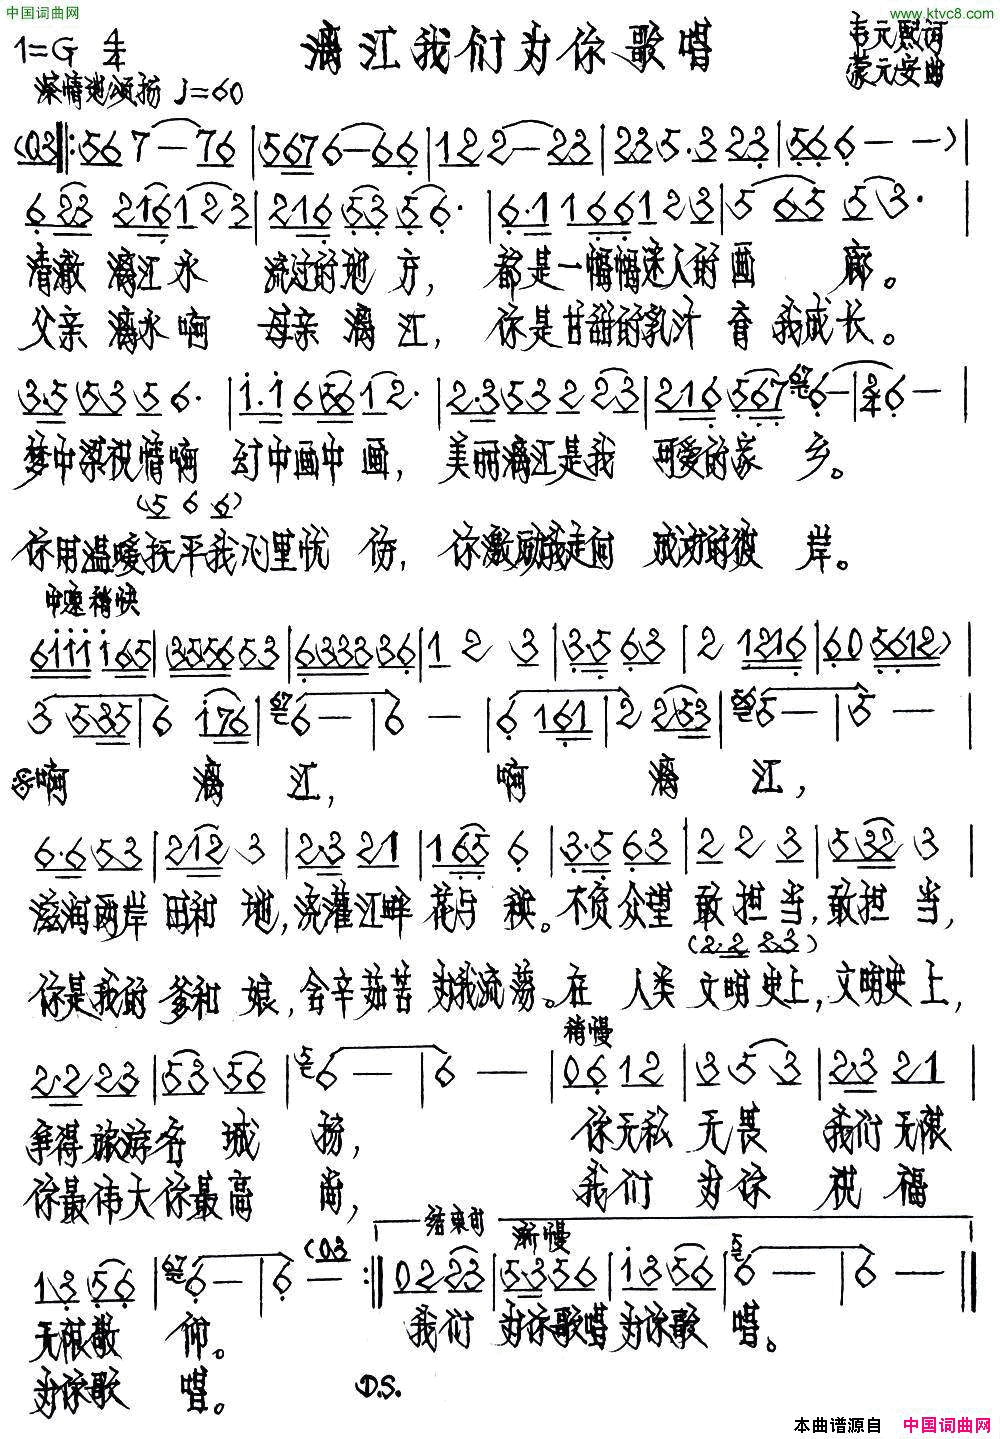 中国词曲网
www.ktvc8.com
漓江我们为你歌唱
1=G 4/4
韦元熙词
蒙元安曲
深情地 颂扬 ♩=60
(03‖: 567—76|56 76—66|122—23|235.323|566——)|
623 2161 23|216 535 6.|6.1 1661 23|5 65 53.|
清澈 漓江水 流过的地 方, 都是一幅幅迷人的画 廊。
父亲 漓水啊 母亲 漓 江, 你是甘甜的乳汁 育 我成长。
3.5 53 5 6.|1.1 656 12.|2.353 2 23|216 567 6—|2/4 6—|
梦中深祝情啊 幻中画中 画, 美丽漓江是我 可爱的家 乡。
(5 6 6)
你用温暖抚平我心里忧 伤, 你激励我走向 成功的彼 岸。
中速稍快
6111 165|3556 53|6333 36|1 2 3|3.5 63|2 1216|60 5612)|
3 535|6 176|6—|6—|6 161|2 253|5—|5—|
啊 漓 江, 啊 漓 江,
6.6 53|212 3|2.3 21|165 6|3.5 63|2 2 3|532 3|
滋润两岸 田和 地, 浇灌江畔 花与 秧。不负众望 敢 担 当, 敢担 当,
(2.2 23)
你是我的 爹和 娘, 含辛茹苦 为我流 荡。在 人类 文明 史上, 文明史 上,
稍慢
2.2 23|53 56|6—|6—|06 12|3 5 3|23 21|
争得 旅游名 城 扬, 你无私 无畏 我们 无限
你最伟大你最高 尚, 我们 为你 祝 福
结束时
渐慢
13 56|6—|6—(03:‖02 23|53 56|13 56|6—|6—‖
无限敬 仰。 我们 为你歌唱为你歌 唱。
为你歌 唱。 D.S.
本曲谱源自 中国词曲网